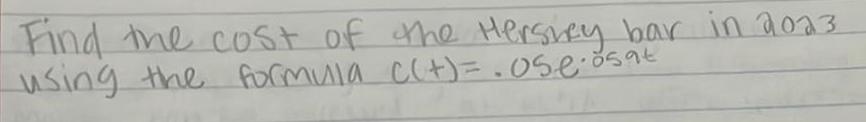 Find the cost of the Hershey bar in 2023
using the formula c(t)= .05e.059t